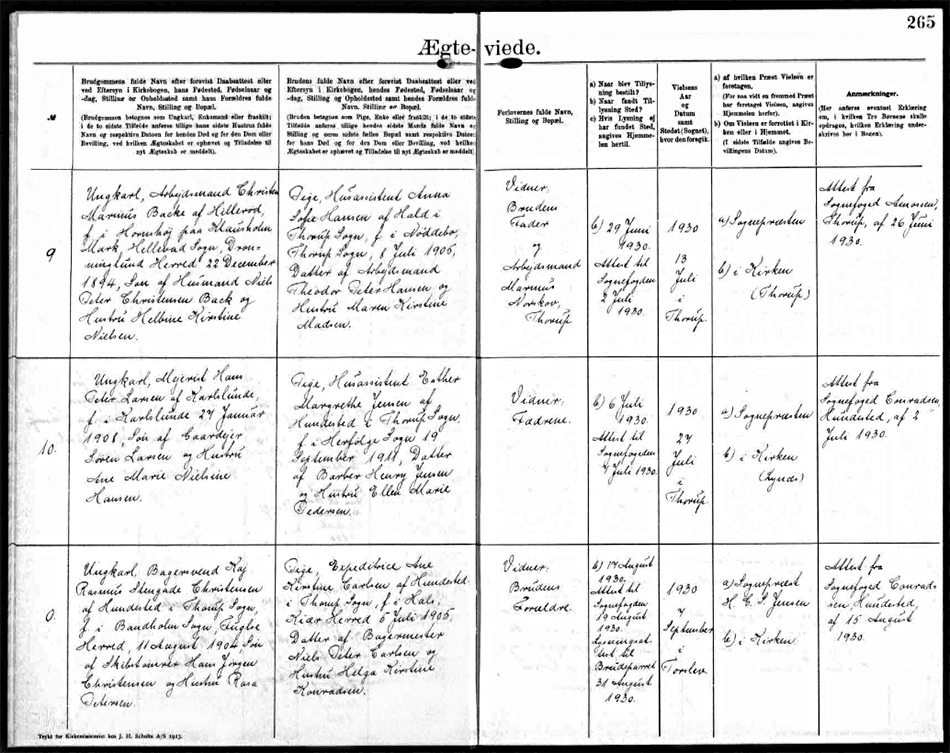 265
Ægte-viede.
№
Brudgommens fulde Navn efter forevist Daabsattest eller
ved Eftersyn i Kirkebogen, hans Fødested, Fødselsaar og
-dag, Stilling og Opholdssted samt hans Forældres fulde
Navn, Stilling og Bopæl.
(Brudgommen betegnes som Ungkarl, Enkemand eller fraskilt;
i de to sidste Tilfælde anføres tillige hans sidste Hustrus fulde
Navn og respektive Datoen for hendes Død og for den Dom eller
Bevilling, ved hvilken Ægteskabet er ophævet og Tilladelse til
nyt Ægteskab er meddelt).
Brudens fulde Navn efter forevist Daabsattest eller ved
Eftersyn i Kirkebogen, hendes Fødested, Fødselsaar og
-dag, Stilling og Opholdssted samt hendes Forældres fulde
Navn, Stilling og Bopæl.
(Bruden betegnes som Pige, Enke eller fraskilt; i de to sidste
Tilfælde anføres tillige hendes sidste Mands fulde Navn
Stilling og deres sidste fælles Bopæl samt respektive Datoen
for hans Død og for den Dom eller Bevilling, ved hvilken
Ægteskabet er ophævet og Tilladelse til nyt Ægteskab er meddelt)
Forlovernes fulde Navn,
Stilling og Bopæl.
a) Naar blev Tillys-
ning bestilt?
b) Naar fandt Til-
lysning Sted?
c) Hvis Lysning ej
har fundet Sted,
angives Hjemme-
len hertil.
Vielsens
Aar
og
Datum
samt
Stedet (Sognet),
hvor den foregik.
a) af hvilken Præst Vielsen er
foretagen.
(For saa vidt en fremmed Præst
har foretaget Vielsen, angives
Hjemmelen herfor).
b) Om Vielsen er forrettet i Kir-
ken eller i Hjemmet.
(I sidste Tilfælde angives Be-
villingens Datum).
Anmærkninger.
(Her anføres eventuel Erklæring
om, i hvilken Tro Børnene skulle
opdrages, hvilken Erklæring under-
skrives her i Bogen).
9
Ungkarl, Arbejdsmand Christen
Marinus Back af Hillerød,
f. i Hornhøj paa Klausholm
Mark, Hellevad Sogn, Dron-
ninglund Herred 22 December
1894, Søn af Husmand Niels
Peter Christensen Back og
Hustru Helbine Kirstine
Nielsen.
Pige, Husassistent Anna
Sofie Hansen af Hald i
Thorup Sogn, f. i Nøddebo,
Thorup Sogn, 8 Juli 1905,
Datter af Arbejdsmand
Theodor Peter Hansen og
Hustru Maren Kirstine
Madsen.
Vidner,
Brudens
Fader
og
Arbejdsmand
Marinus
Norskov,
Thorup
b) 29 Juni
1930.
Attest til
Sognefogden
2 Juli
1930.
1930
13
Juli
i
Thorup.
a) Sognepræsten
b) i Kirken
(Thorup)
Attest fra
Sognefoged Amosen,
Thorup, af 26 Juni
1930.
10.
Ungkarl, Mejerist Hans
Peter Larsen af Karlslunde,
f. i Karlslunde 27 Januar
1908, Søn af Gaardejer
Søren Larsen og Hustru
Ane Marie Nielsine
Hansen.
Pige, Husassistent Esther
Margrethe Jensen af
Hundested i Thorup Sogn,
f. i Herfølge Sogn 19
September 1911, Datter
af Barber Henry Jensen
og Hustru Ellen Marie
Pedersen.
Vidner,
Fædrene.
b) 6 Juli
1930.
Attest til
Sognefogden
7 Juli 1930.
1930.
27
Juli
i
Thorup.
a) Sognepræsten
b) i Kirken
(Lynæs)
Attest fra
Sognefoged Conradsen,
Hundested, af 2
Juli 1930.
0.
Ungkarl, Bagersvend Kaj
Rasmus Stengade Christensen
af Hundested i Thorup Sogn,
f. i Bandholm Sogn, Fuglse
Herred, 11 August 1904 Søn
af Skibstømrer Hans Jørgen
Christensen og Hustru Rasa
Petersen.
Pige, Expeditrice Ane
Kirstine Carlsen af Hundested
i Thorup Sogn, f. i Hals,
Kiær Herred 5 Juli 1905,
Datter af Bagermester
Niels Peter Carlsen og
Hustru Helga Kirstine
Konradsen.
Vidner,
Brudens
Forældre.
b) 17 August
1930.
Attest til
Sognefogden
19 August
1930.
Lysningsat-
test til
Brudeparret
31 August
1930.
1930
7
September
i
Torslev.
a) Sognepræst
H. C. S. Jensen
b) i Kirken
Attest fra
Sognefoged Conrad-
sen, Hundested,
af 15 August
1930.
Trykt for Kirkeministeriet hos J. H. Schultz A/S 1913.